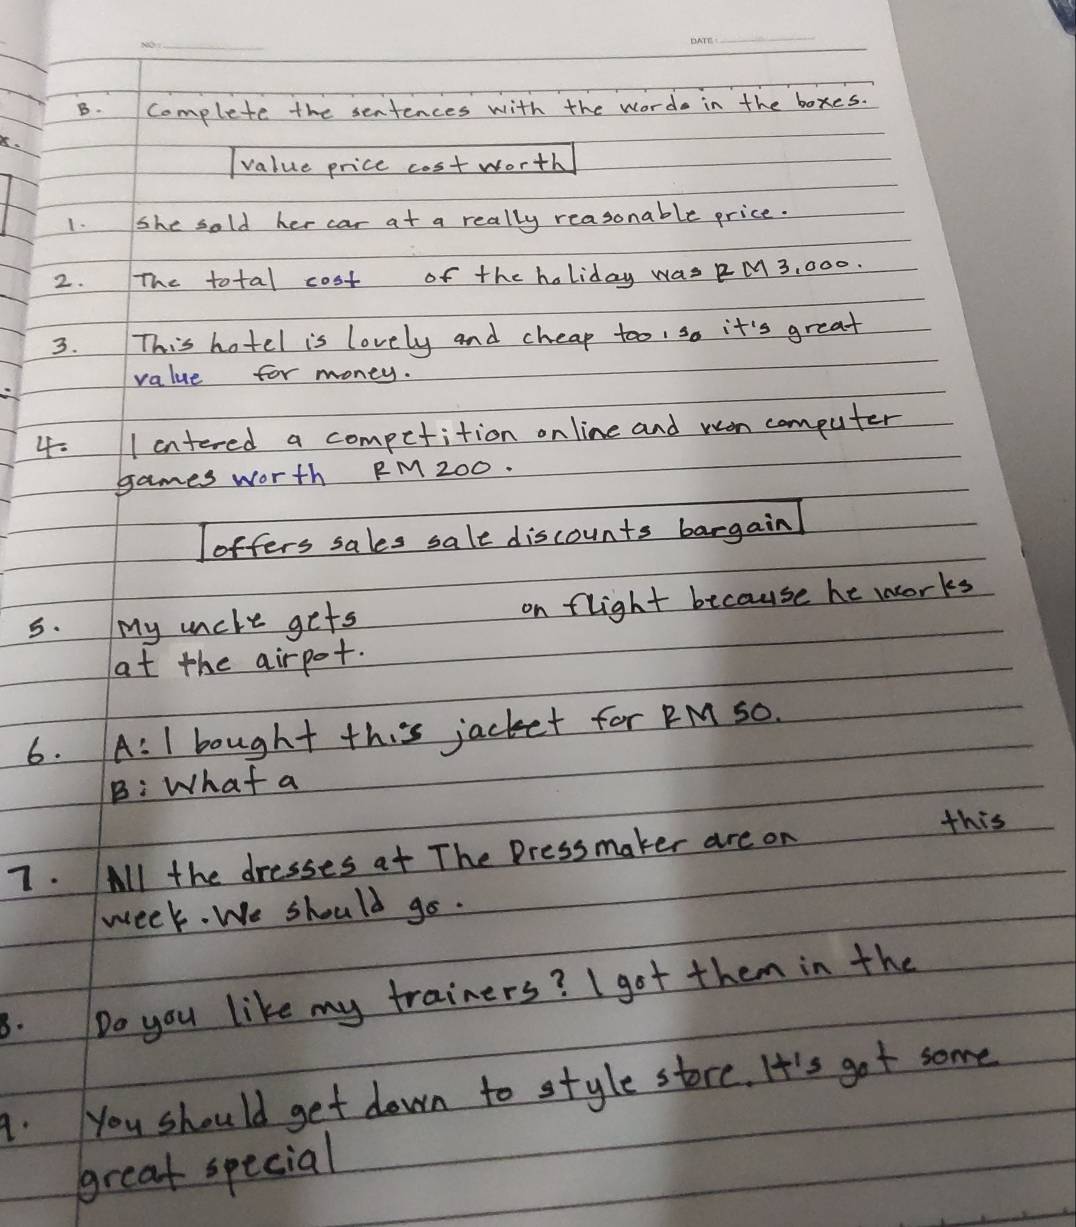 NO:
DATE:
B. Complete the sentences with the words in the boxes.
value price cost worth
1. She sold her car at a really reasonable price.
2. The total cost of the holiday was RM 3,000.
3. This hotel is lovely and cheap too, so it's great
value for money.
4. I entered a competition online and won computer
games worth RM 200.
offers sales sale discounts bargain
5. My uncle gets on flight because he works
at the airpot.
6. A: I bought this jacket for RM 50.
B: What a
7. All the dresses at The Dressmaker are on this
week. We should go.
8. Do you like my trainers? I got them in the
9. You should get down to style store. It's got some
great special